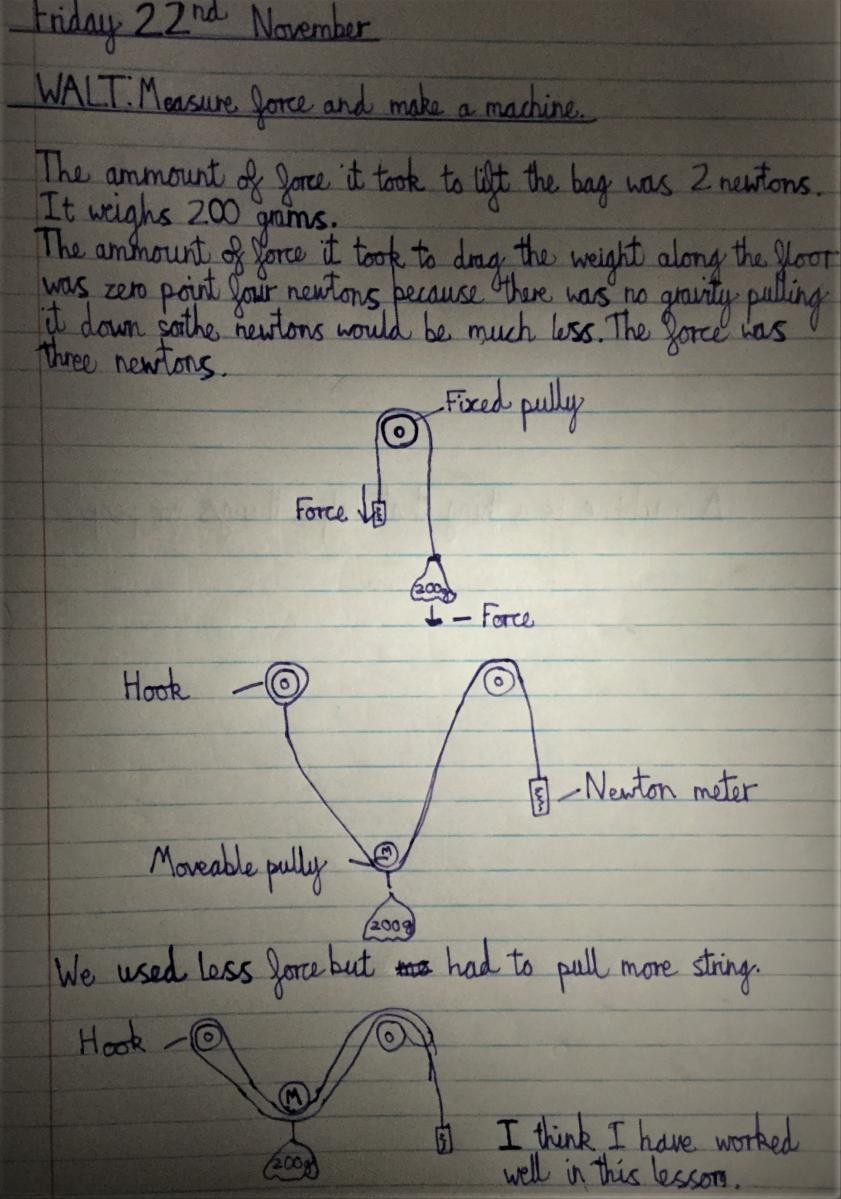 Friday 22nd November
WALT: Measure force and make a machine.
The ammount of force it took to lift the bag was 2 newtons.
It weighs 200 grams.
The ammount of force it took to drag the weight along the floor
was zero point four newtons because there was no gravity pulling
it down so the newtons would be much less. The force was
three newtons.
Fixed pully
Force
200g
Force
Hook
Newton meter
Moveable pully
M
200g
We used less force but had to pull more string.
Hook
M
200g
I think I have worked
well in this lesson.